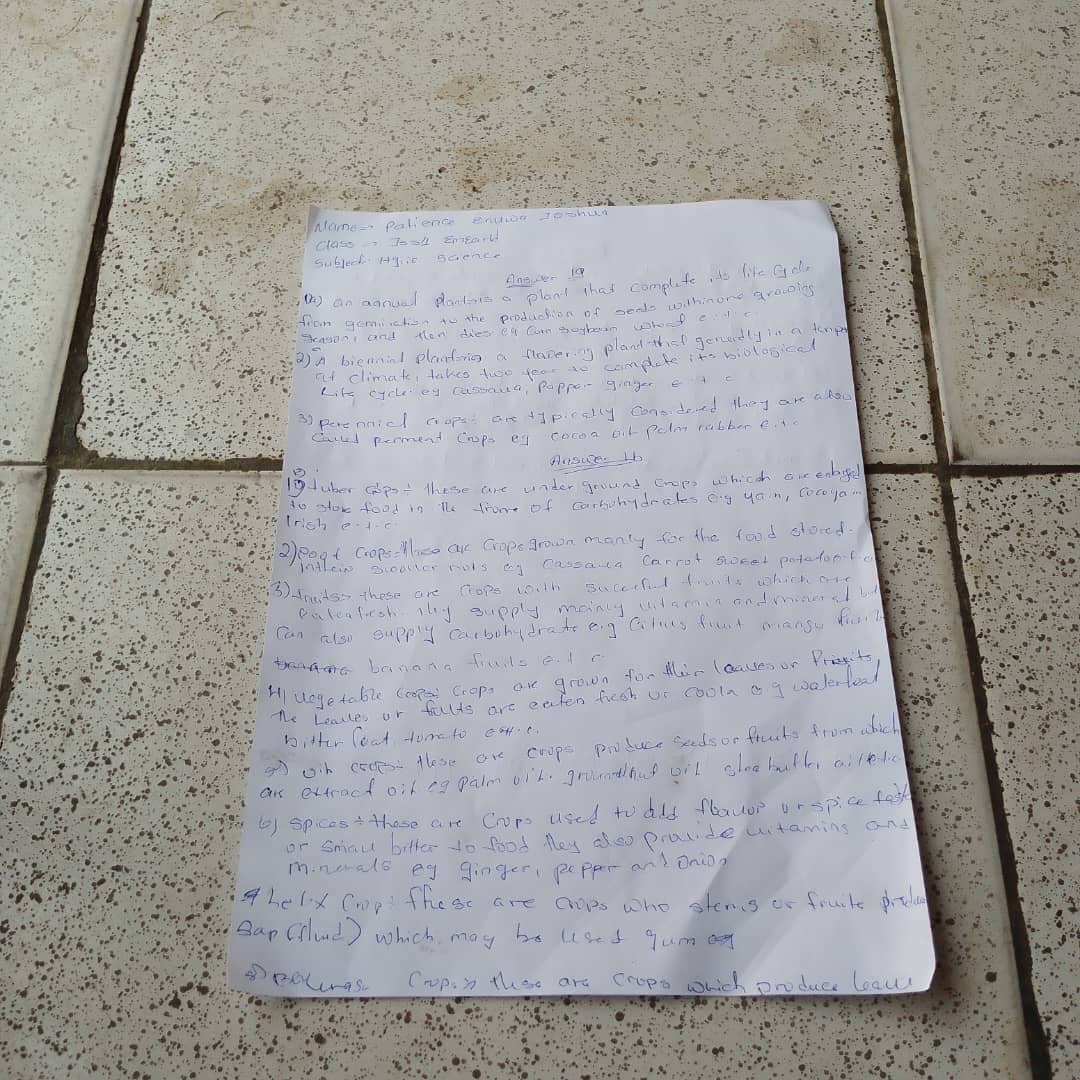 Name => Patience Enuwa Joshua
Class => Jss1
Subject: Science
Answer 1a
1a) an annual plants is a plant that complete its life Cycle
from to the production of seeds within one growing
Season, and then dies eg Corn Soybean wheat e.t.c
2) A biennial plants is a flowering plant that generally in a
climate, takes two year to complete its biological
Life cycle eg Cassava, Pepper ginger e t c
3) perennial crops: are typically Considered they are also
Called perment Crops eg cocoa oil palm rubber e.t.c
Answer 1b
1) tuber crops: these are under ground Crops which are
to store food in the of carbohydrates e.g yam, cocoyam
Irish e.t.c.
2) Root Crops: these are Crops grown manly for the food stored
eg Cassava Carrot sweet
3) fruits: these are Crops with fruits which are
fresh. they supply mainly vitamin and mineral but
Can also supply carbohydrate e.g Citrus fruit mango
banana fruits e.t.c
4) vegetable Crops: Crops are grown for their leaves or
the Leaves or are eaten fresh or waterleaf
bitter tomato
5) these are crops produce seeds or fruits from which
are extract oil eg palm oil. oil
6) Spices: these are Crops used to add flavour or spice
or small bitter to food they also provide vitamins and
Minerals eg ginger, pepper and onion
Crop: these are crops who stems or fruits
Sap (fluid) which may be used gum eg
Crops: these are crops which produce